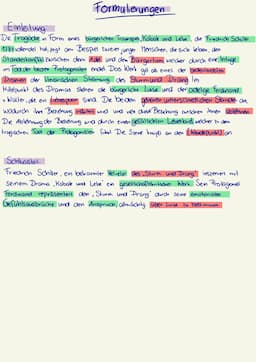 Formulierungen
Einleitung
Die Tragödie in Form eines bürgerlichen Trauerspiels, Kabale und Liebe, die Friedrich Schiller
1784 vollendet hat, zeigt am Beispiel zweier junger Menschen, die sich lieben, den
Standeskonflikt zwischen dem Adel und dem Bürgertum, welcher durch eine Intrige
im Tod der beiden Protagonisten endet. Das Werk gilt als eines der bedeutendsten
Dramen der literarischen Strömung des Sturm und Drang. Im
Mittelpunkt des Dramas stehen die bürgerliche Luise und der adelige Ferdinand
v. Walter, die ein Liebespaar sind. Die beiden gehören unterschiedlichen Stände an,
wodurch ihre Beziehung und ihre Beziehung ablehnen.
Die Ablehnung der Beziehung wird durch einen gefälschten Liebesbrief welcher zu dem
tragischen Tod der Protagonisten führt. Die Szene
Schlussteil
Friedrich Schiller, ein bekannter Vertreter des "Sturm und Drang", inszeniert mit
seinem Drama "Kabale und Liebe" ein gesellschaftskritisches Werk. Sein Protagonist
Ferdinand repräsentiert den "Sturm und Drang" durch seine emotionalen
Gefühlsausbrüche und den Anspruch, allmächtig über Luise zu bestimmen.